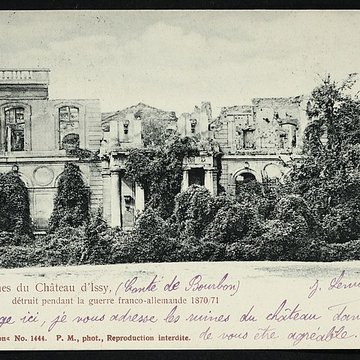 nes du Château d'Issy, (Conté de Bourbon)
détruit pendant la guerre franco-allemande 1870/71
ge ici, je vous adresse les ruines du château dans
ons No. 1444. P. M., phot., Reproduction interdite. de vous être agréable.